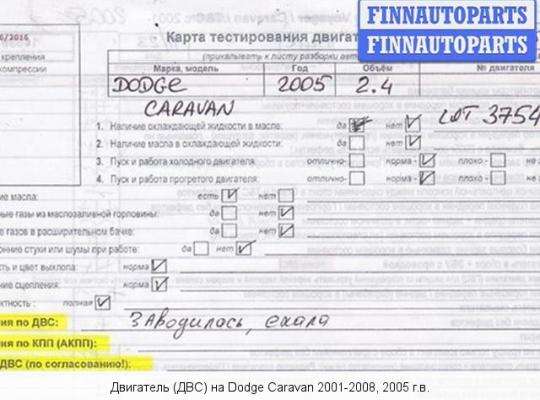 FINNAUTOPARTS
FINNAUTOPARTS
6/2016
крепления
компрессии
Карта тестирования двигат
(прикалывать к листу разборки авт
Марка, модель Год Объём № двигателя
DODGE 2005 2.4
CARAVAN LOT 3754
1. Наличие охлаждающей жидкости в масле: да нет
2. Наличие масла в охлаждающей жидкости: да нет
3. Пуск и работа холодного двигателя: отлично- норма - плохо -
4. Пуск и работа прогретого двигателя: отлично- норма - плохо -
ие масла: есть нет
ные газы из маслозаливной горловины: да нет
е газов в расширительном бачке: да нет
онние стуки или шумы при работе: да нет
сть и цвет выхлопа: норма
ние сцепления: норма
ктность : полная
ния по ДВС: заводилась, ехала
ия по КПП (АКПП):
ДВС (по согласованию!):
Двигатель (ДВС) на Dodge Caravan 2001-2008, 2005 г.в.